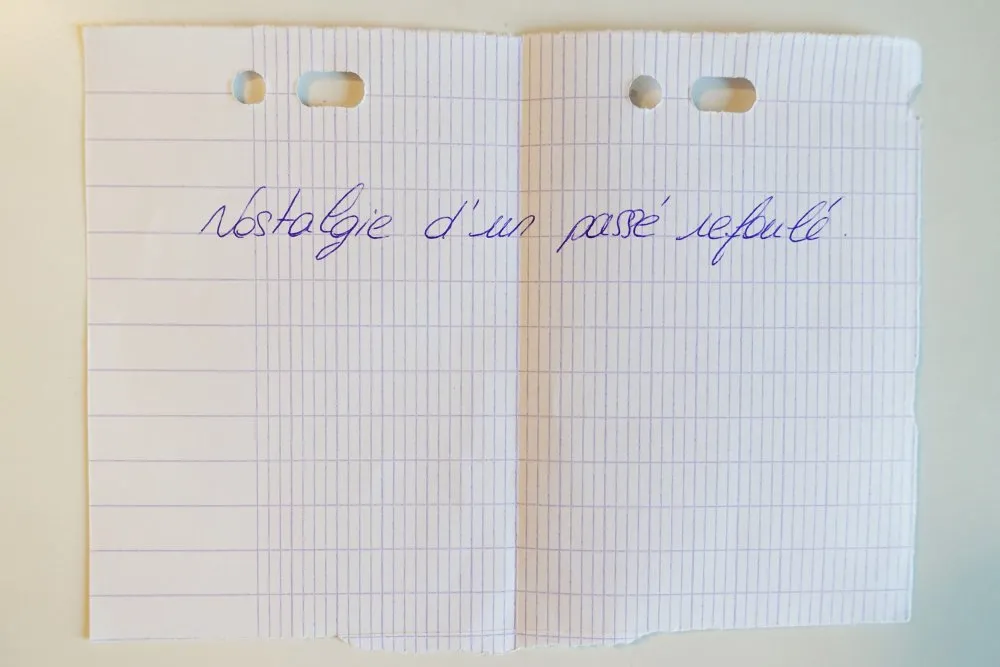 Nostalgie d'un passé refoulé.